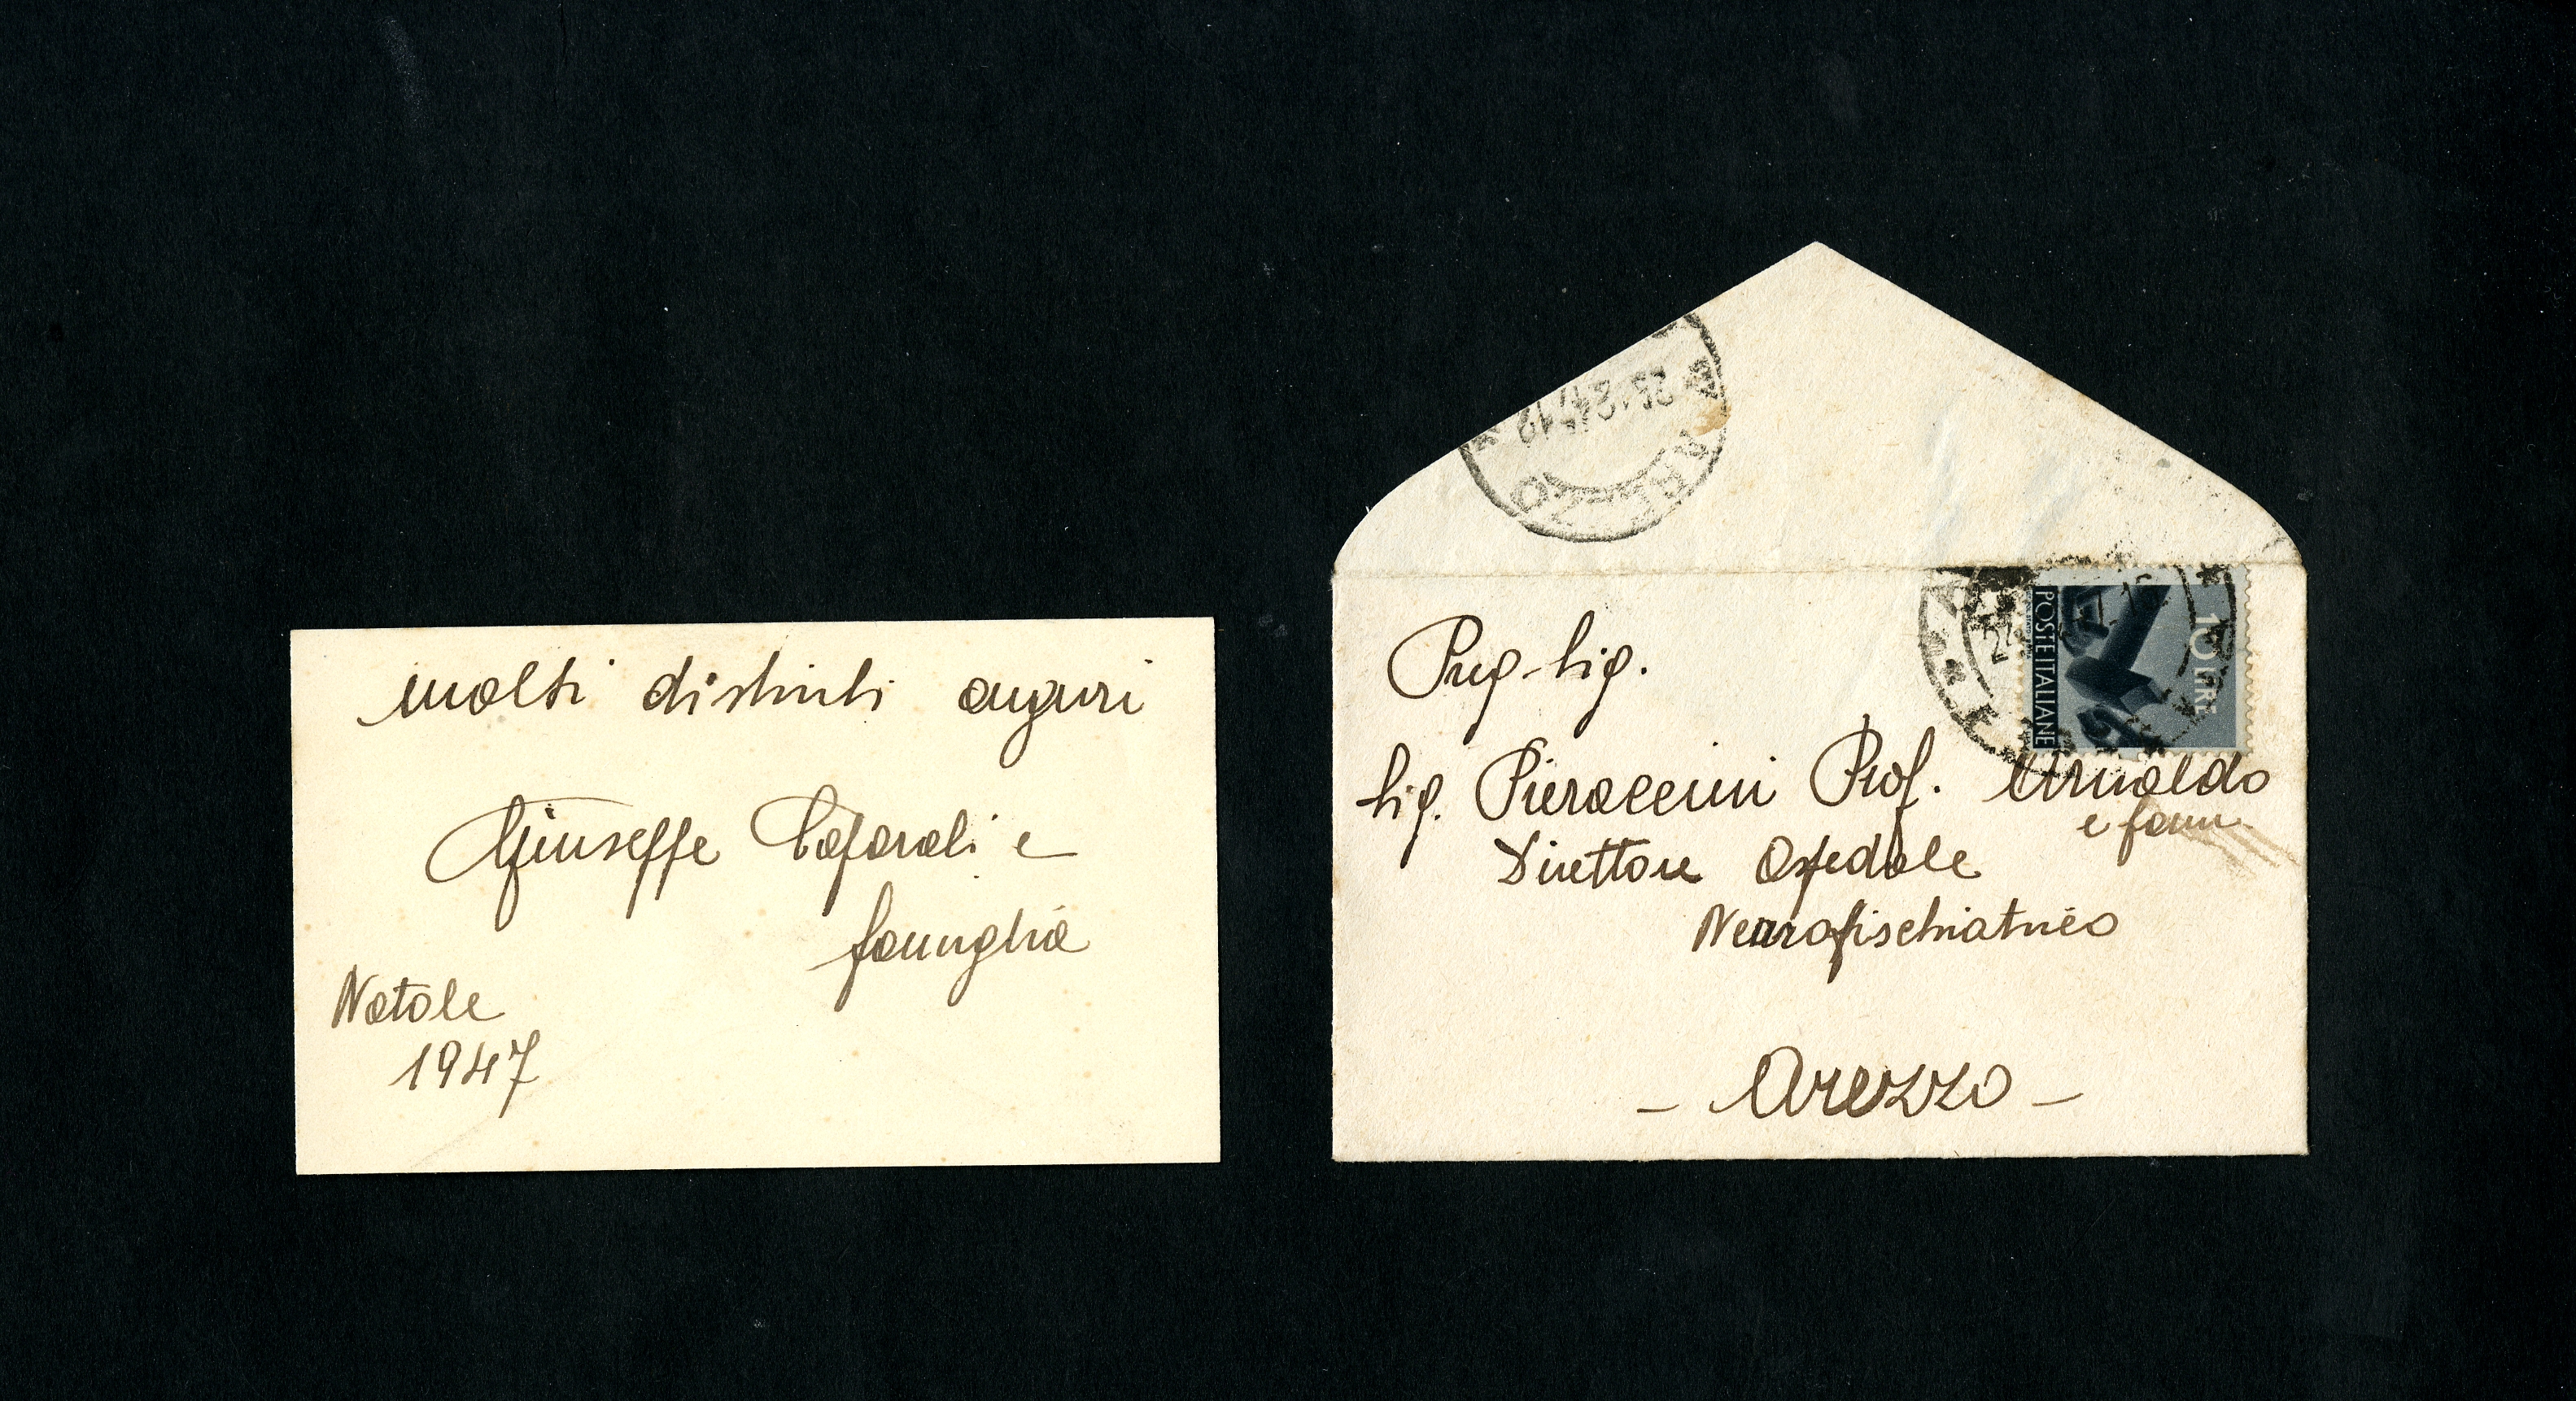 molti distinti auguri
Giuseppe Caporali e
famiglia
Natale
1947
Preg. Sig.
Sig. Pieraccini Prof. Arnaldo
e fam.
Direttore Ospedale
Neuropsichiatrico
- Arezzo -
10 LIRE
POSTE ITALIANE
AREZZO